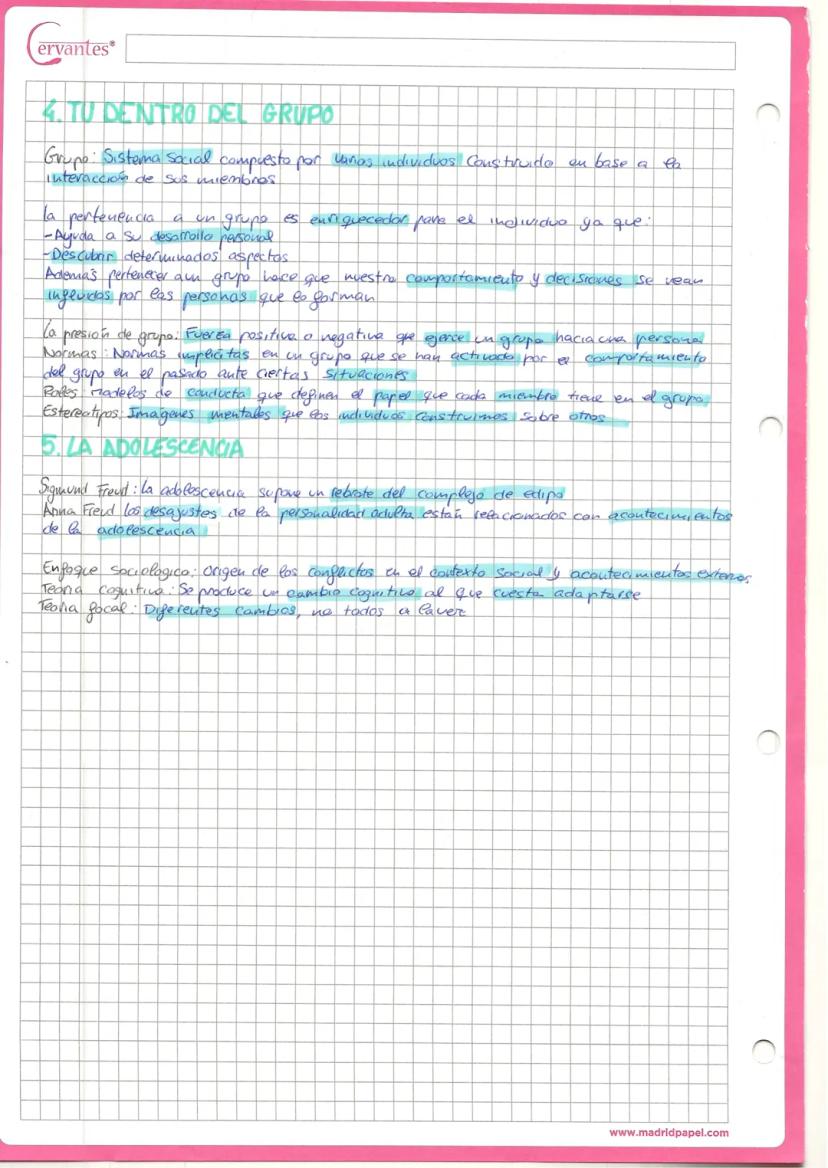 Cervantes®
4. TU DENTRO DEL GRUPO
Grupo: Sistema Social compuesto por varios individuos Construido en base a la
interacción de sus miembros
la pertenencia a un grupo es enriquecedor para el individuo ya que:
-Ayuda a su desarrollo personal
-Descubrir determinados aspectos
Además pertenecer aun grupo hace que nuestro comportamiento y decisiones se vean
influidos por las personas que lo forman
La presión de grupo: Fuerza positiva o negativa que ejerce un grupo hacia una persona
Normas: Normas implícitas en un grupo que se han activado por el comportamiento
del grupo en el pasado ante ciertas situaciones
Roles modelos de conducta que definen el papel que cada miembro tiene en el grupo
Estereotipos: Imágenes mentales que los individuos construimos sobre otros
5. LA ADOLESCENCIA
Sigmund Freud: la adolescencia supone un rebrote del complejo de edipo
Anna Freud los desajustes de la personalidad adulta están relacionados con acontecimientos
de la adolescencia
Enfoque sociológico: origen de los conflictos en el contexto social y acontecimientos externos
Teoria cognitiva: Se produce un cambio cognitivo al que cuesta adaptarse
Teoria focal: Diferentes cambios, no todos a la vez
www.madridpapel.com